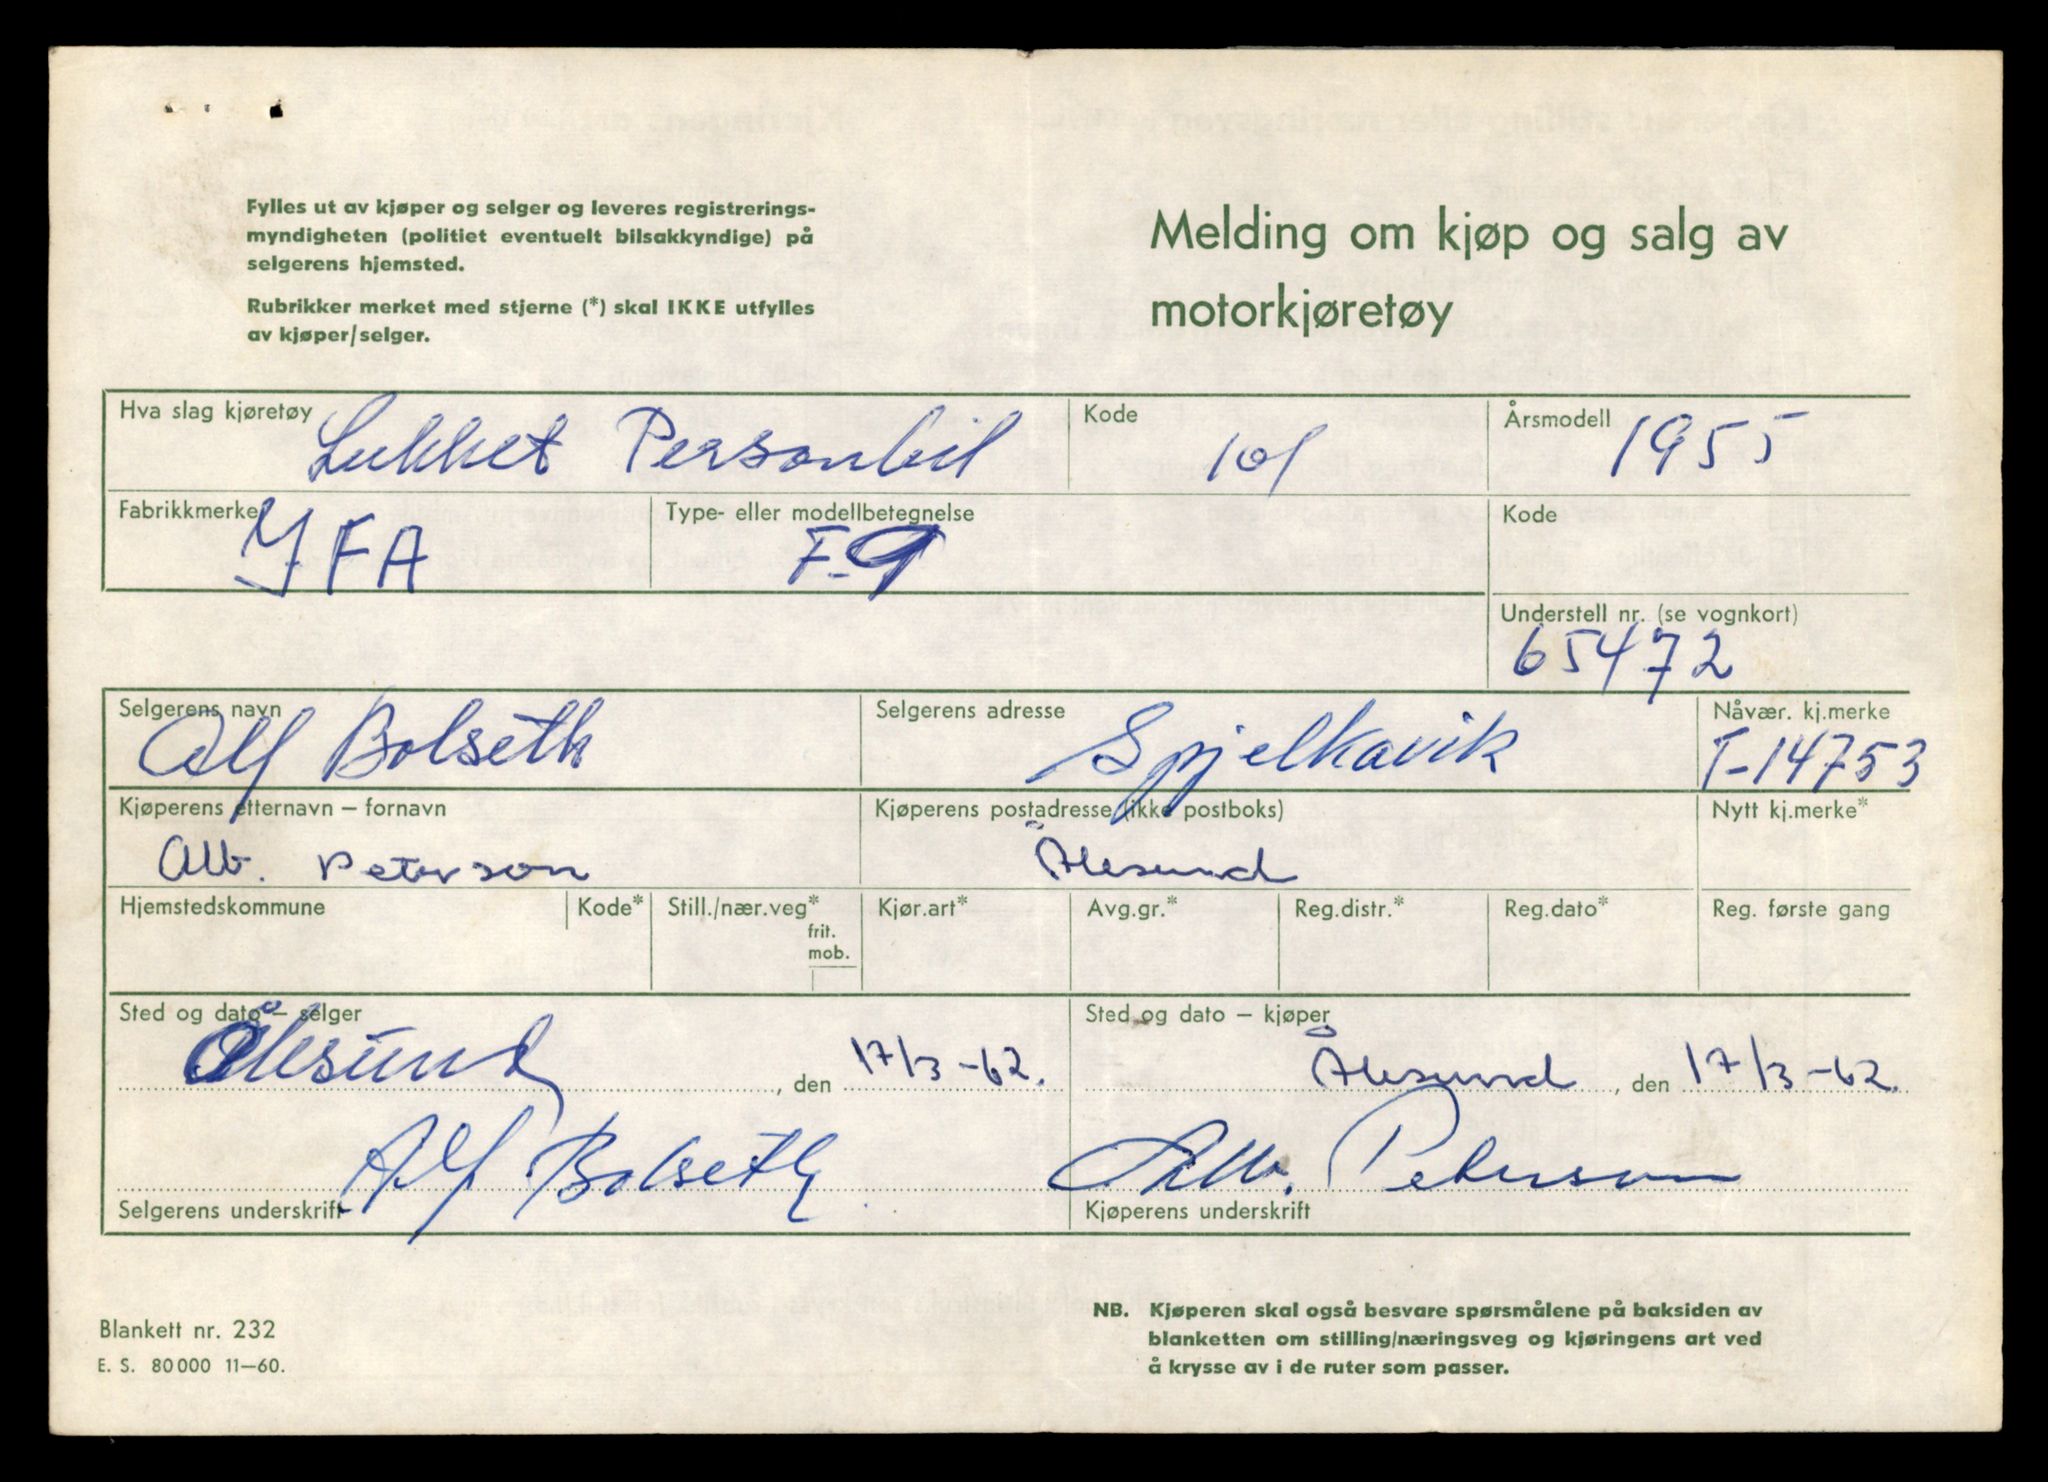 Fylles ut av kjøper og selger og leveres registrerings-
myndigheten (politiet eventuelt bilsakkyndige) på
selgerens hjemsted.
Rubrikker merket med stjerne (*) skal IKKE utfylles
av kjøper/selger.
Melding om kjøp og salg av
motorkjøretøy
Hva slag kjøretøy Lukket Personbil
Kode 101
Årsmodell 1955
Fabrikkmerke IFA
Type- eller modellbetegnelse F-9
Kode
Understell nr. (se vognkort)
65472
Selgerens navn
Alf Bolseth
Selgerens adresse
Spjelkavik
Nåvær. kj.merke
T-14753
Kjøperens etternavn – fornavn
Alb. Peterson
Kjøperens postadresse (ikke postboks)
Ålesund
Nytt kj.merke*
Hjemstedskommune
Kode*
Still./nær.veg*
frit.
mob.
Kjør.art*
Avg.gr.*
Reg.distr.*
Reg.dato*
Reg. første gang
Sted og dato – selger
Ålesund, den 17/3-62.
Sted og dato – kjøper
Ålesund, den 17/3-62.
Alf Bolseth
Selgerens underskrift
Alb. Peterson
Kjøperens underskrift
Blankett nr. 232
E. S. 80000 11–60.
NB. Kjøperen skal også besvare spørsmålene på baksiden av
blanketten om stilling/næringsveg og kjøringens art ved
å krysse av i de ruter som passer.